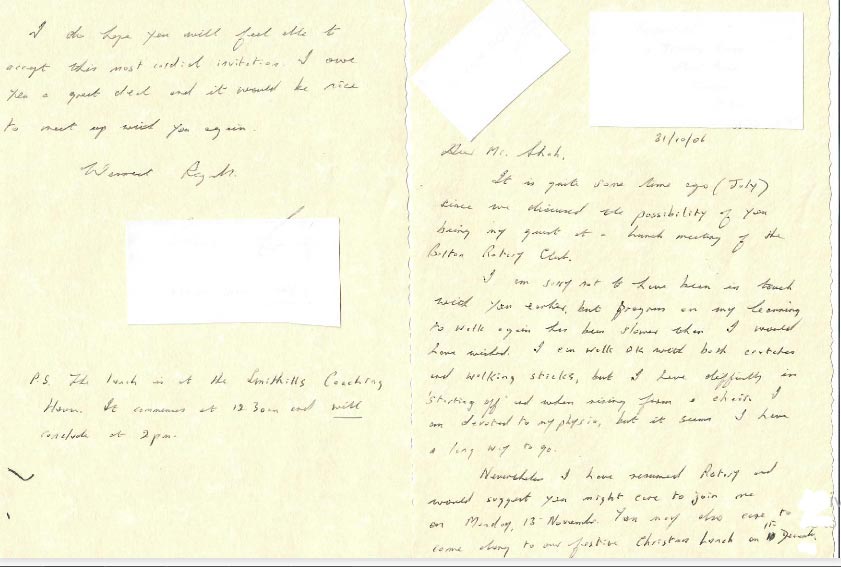 31/10/06
Dear Mr. Shah,
It is quite some time ago (July)
since we discussed the possibility of you
being my guest at a lunch meeting of the
Bolton Rotary Club.
I am sorry not to have been in touch
with you earlier, but progress on my learning
to walk again has been slower than I would
have wished. I can walk OK with both crutches
and walking sticks, but I have difficulty in
'starting off' and when rising from a chair. I
am devoted to my physio, but it seems I have
a long way to go.
Nevertheless I have resumed Rotary and
would suggest you might care to join me
on Monday, 13th November. You may also care to
come along to our festive Christmas Lunch on December.
I do hope you will feel able to
accept this most cordial invitation. I owe
you a great deal and it would be nice
to meet up with you again.
Warmest Regards.
P.S. The lunch is at the Smithills Coaching
House. It commences at 12.30am and will
conclude at 2pm.